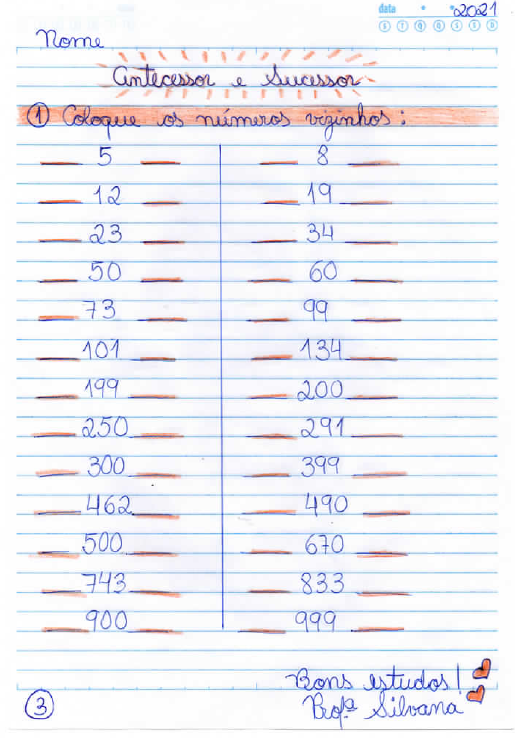 data 2021
S T Q Q S S D
Nome
Antecessor e Sucessor
1 Coloque os números vizinhos:
___ 5 ___ ___ 8 ___
___ 12 ___ ___ 19 ___
___ 23 ___ ___ 34 ___
___ 50 ___ ___ 60 ___
___ 73 ___ ___ 99 ___
___ 101 ___ ___ 134 ___
___ 199 ___ ___ 200 ___
___ 250 ___ ___ 291 ___
___ 300 ___ ___ 399 ___
___ 462 ___ ___ 490 ___
___ 500 ___ ___ 670 ___
___ 743 ___ ___ 833 ___
___ 900 ___ ___ 999 ___
Bons estudos!
3 Profª Silvana